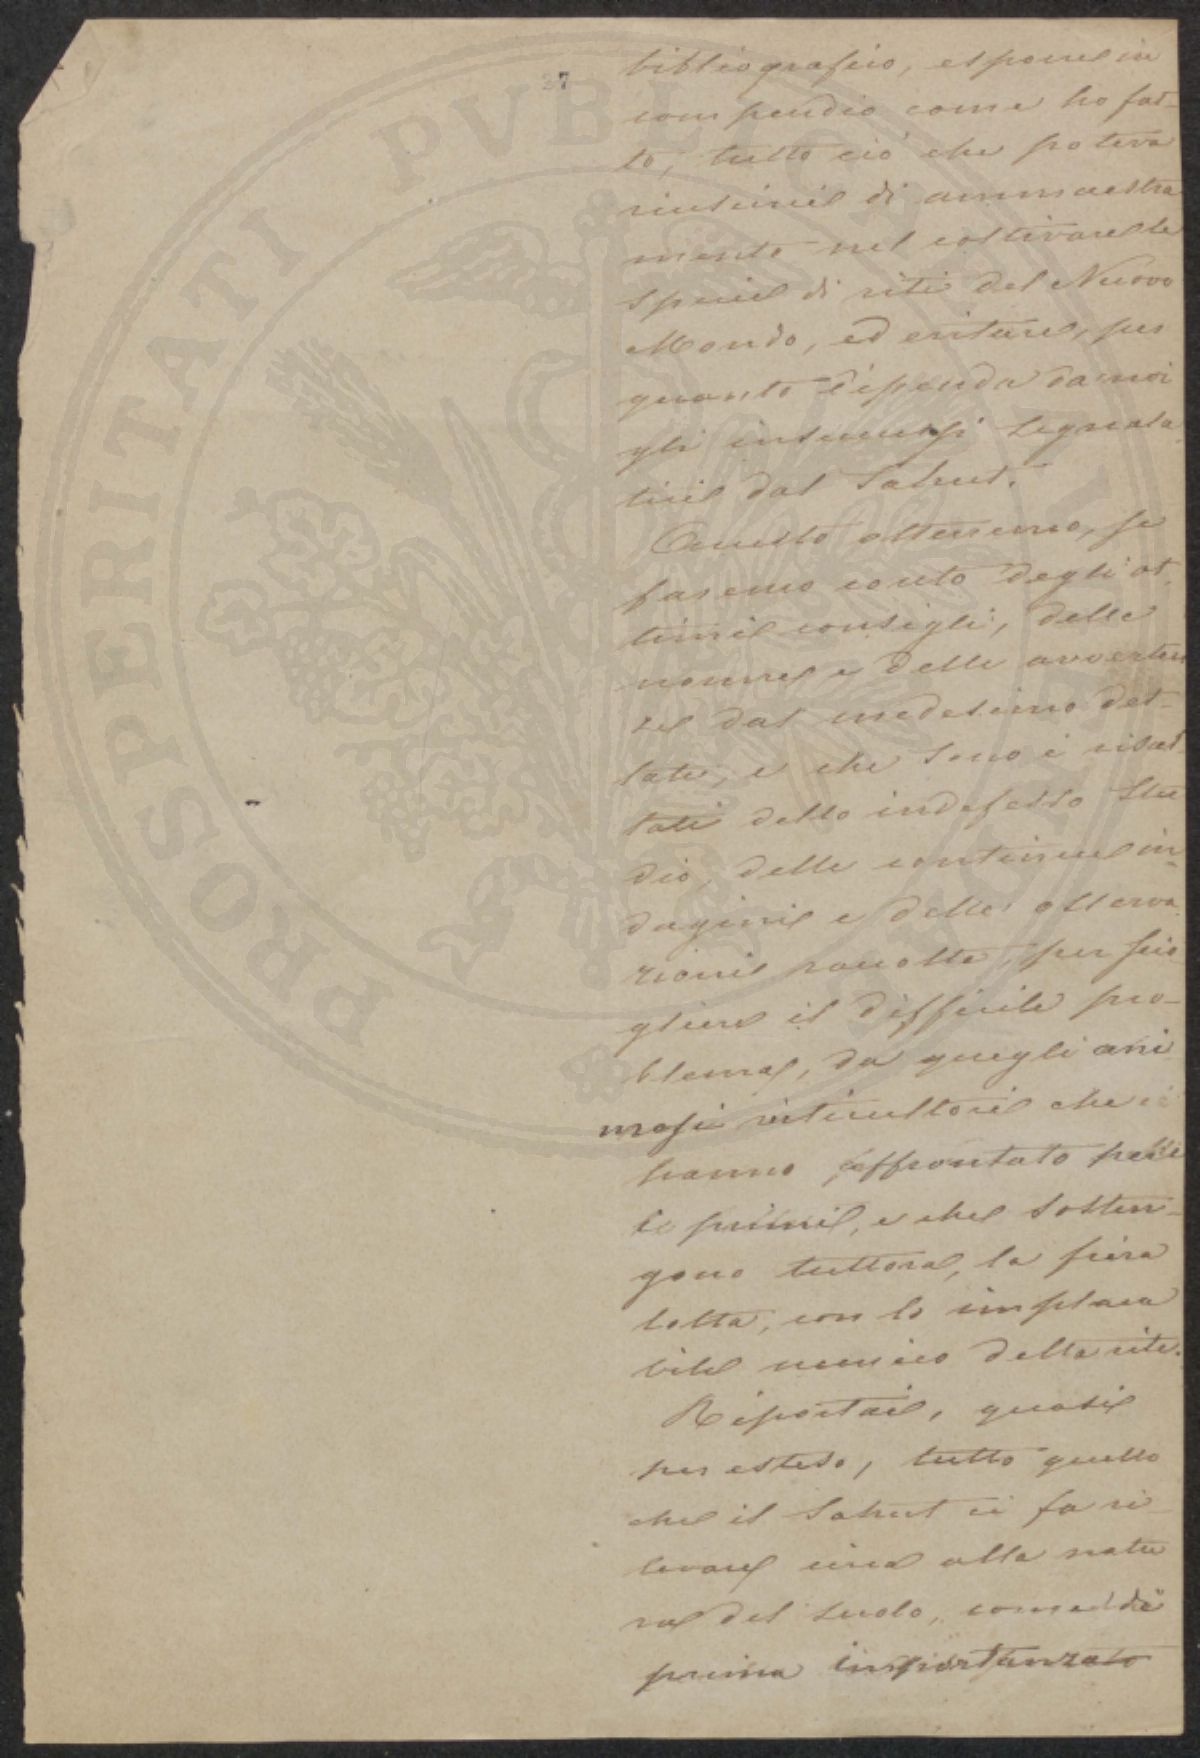 37
bibliografico, esporre in
compendio come ho fat-
to, tutto ciò che poteva
riuscire di ammaestra
mento nel coltivare le
specie di viti del Nuovo
Mondo, ed evitare, per
quanto dipenda da noi
gli insuccessi segnala
tici dal Sahut.
Questo otterremo, se
faremo conto degli ot
timi consigli, delle
norme e delle avverten
ze dal medesimo det-
tate, e che sono i risul
tati dello indefesso stu
dio, delle continue in-
dagini e delle osserva
zioni raccolte, per scio
gliere il difficile pro-
blema, da quegli ani
mosi viticultori che
hanno affrontato
primi, e che sosten-
gono tuttora, la fiera
lotta, con lo implaca
bile nemico della vite.
Riportai, quasi
per esteso, tutto quello
che il Sahut ci fa ri-
levare circa alla natu
ra del suolo, come di
prima importanza
PROSPERITATI PVBLICAE AVGENDAE